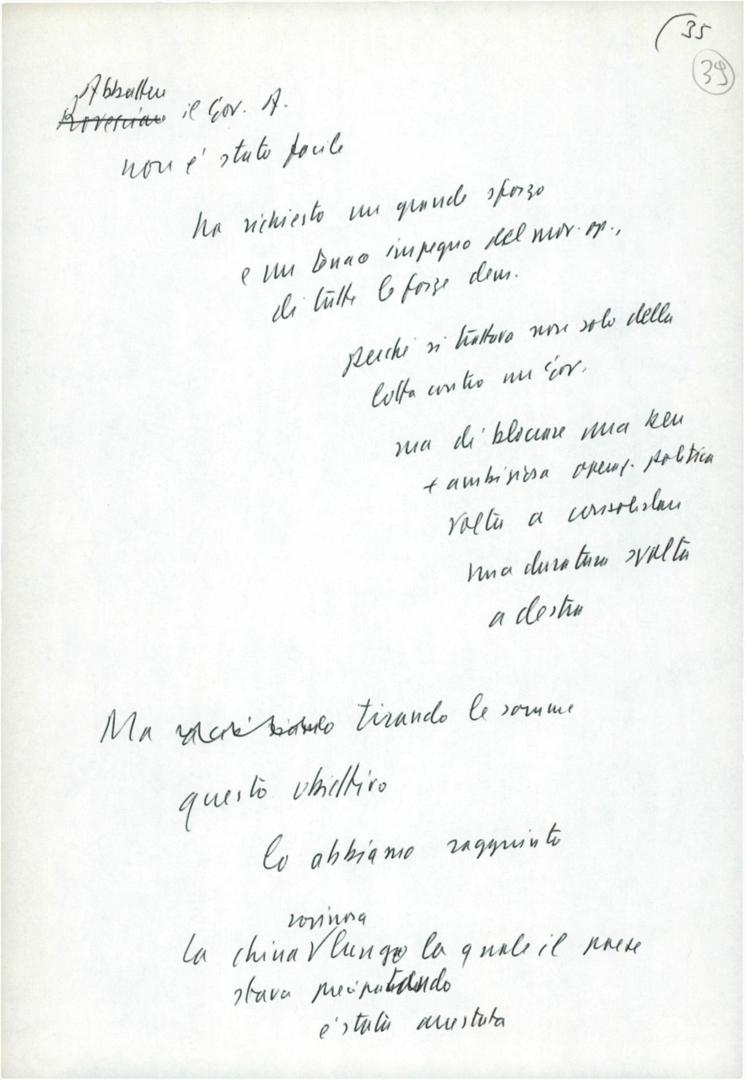 35
39
Abbattere
Rovesciare il Gov. A.
non è stato facile
ha richiesto un grande sforzo
e un tenace impegno del mov. op.,
di tutte le forze dem.
perché si trattava non solo della
lotta contro un Gov.
ma di bloccare una ben
+ ambiziosa operaz. politica
volta a consolidare
una duratura svolta
a destra
Ma tirando le somme
questo obiettivo
lo abbiamo raggiunto
rovinosa
la china lungo la quale il paese
stava precipitando
è stata arrestata